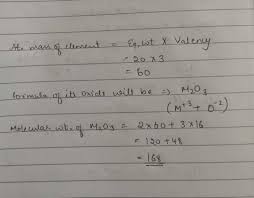 At. mass of element = Eq. wt × Valency
= 20 × 3
= 60
formula of its oxide will be ⇒ M₂O₃
(M⁺³ + O⁻²)
Molecular wt. of M₂O₃ = 2×60 + 3×16
= 120 + 48
= 168